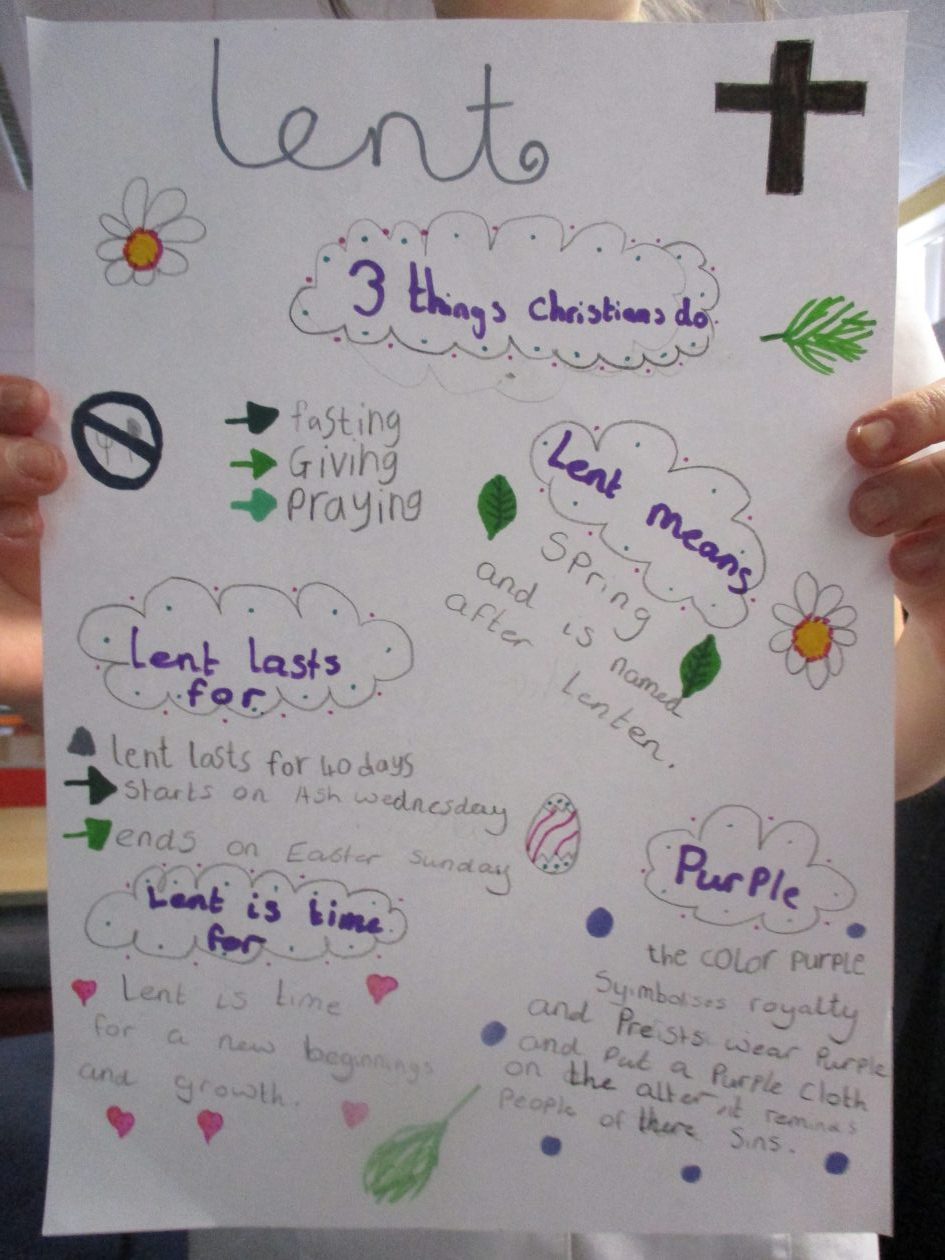 Lent
3 things Christians do
fasting
Giving
Praying
Lent
means
Spring
and is named
after Lenten.
Lent lasts
for
lent lasts for 40 days
Starts on Ash wednesday
ends on Easter Sunday
Lent is time
for
Lent is time
for a new beginnings
and growth.
Purple
the color purple
Syimbolises royalty
and Preists wear Purple
and put a Purple Cloth
on the alter it reminds
People of there Sins.